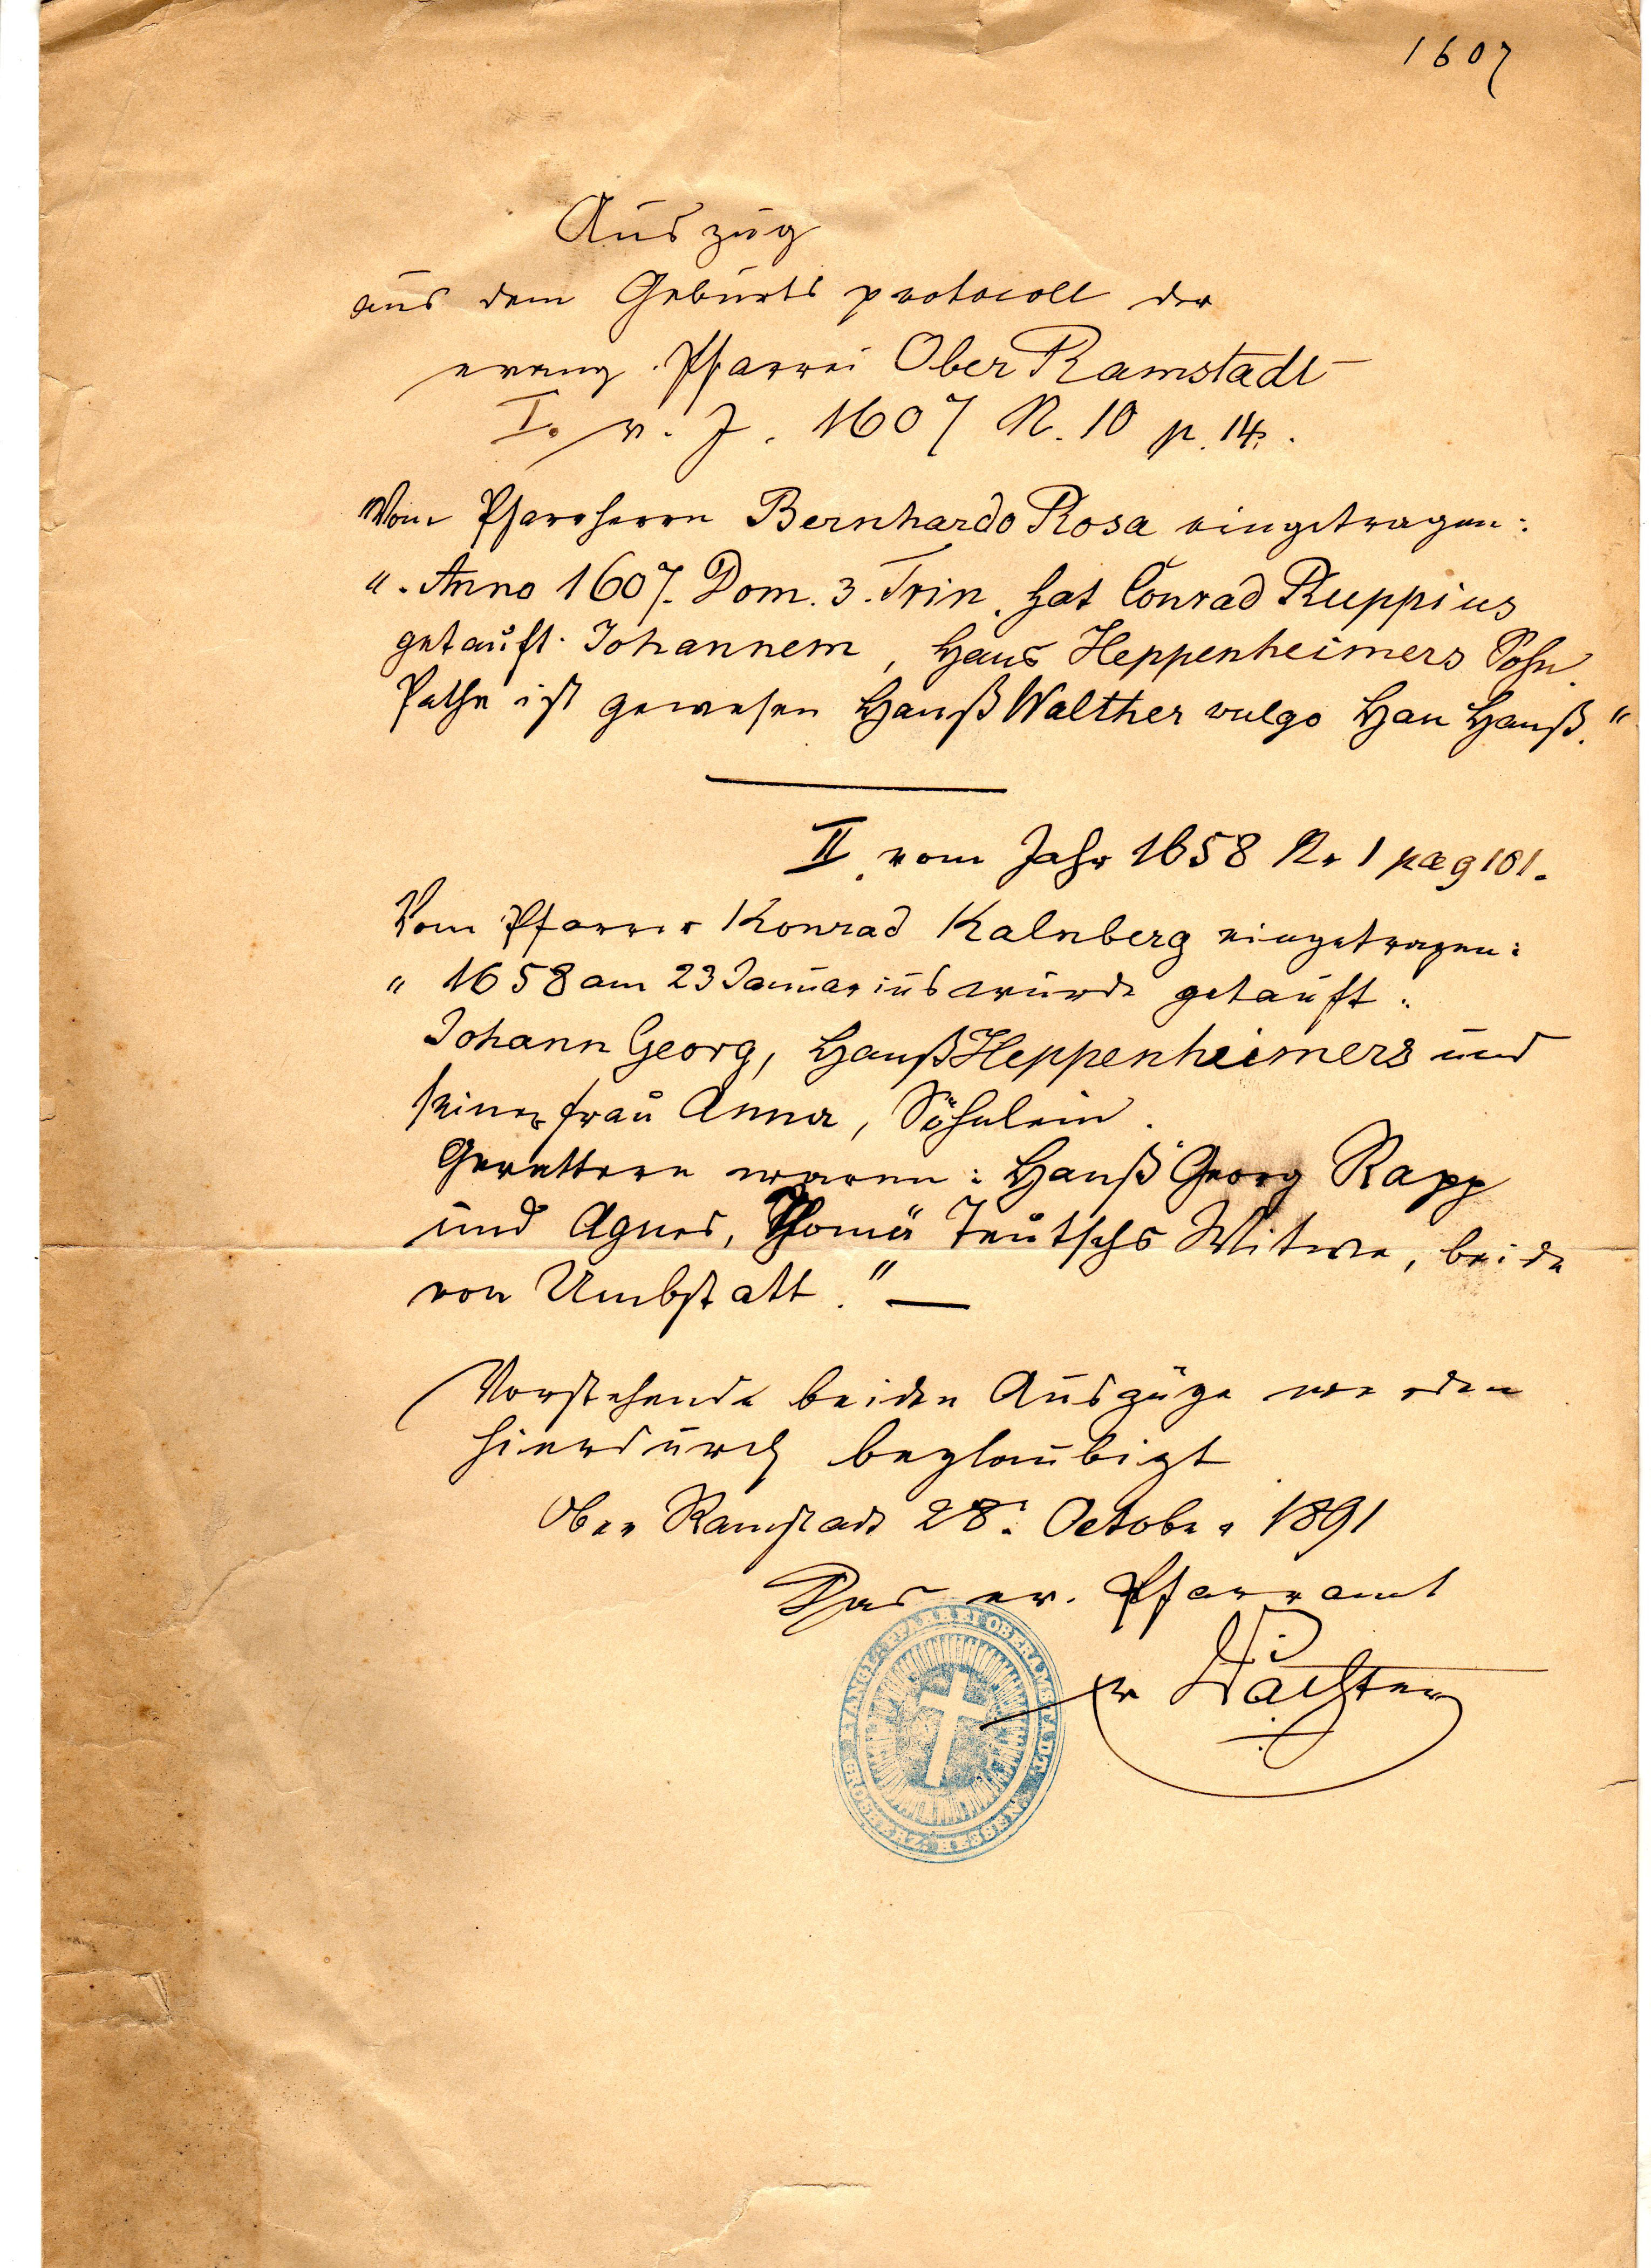 1607
Auszug
aus dem Geburts protocoll der
evang. Pfarrei Ober Ramstadt
I. v. J. 1607 N. 10 p. 14.
Vom Pfarrherrn Bernhardo Rosa eingetragen:
"Anno 1607. Dom. 3. Trin. hat Conrad Ruppius
getauft Johannem, Hans Heppenheimers Sohn.
Pathe ist gewesen Hanß Walther vulgo Han Hanß."
II. vom Jahr 1658 Nr 1 pag 101.
Vom Pfarrer Konrad Kalnberg eingetragen:
" 1658 am 23 Januarius wurde getauft:
Johann Georg, Hanß Heppenheimers und
seiner Frau Anna, Söhnlein.
Gevattern waren: Hanß Georg Rapp
und Agnes, Thomä Teutschs Witwe, beide
von Umbstatt." —
Vorstehende beiden Auszüge werden
hierdurch beglaubigt
Ober Ramstadt 28. October 1891
Das ev. Pfarramt
Wächter
EVANGL: PFARREI OBERAMSTADT.
GROSHERZ: HESSEN.